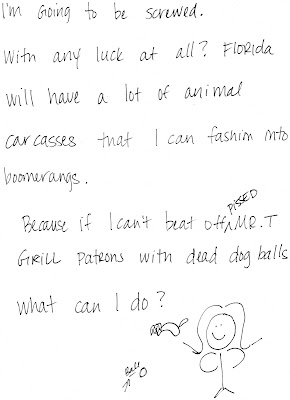 I'm going to be screwed.
With any luck at all? Florida
will have a lot of animal
carcasses that I can fashion into
boomerangs.
Because if I can't beat off PISSED MR. T
GRILL Patrons with dead dog balls
what can I do?
Ball